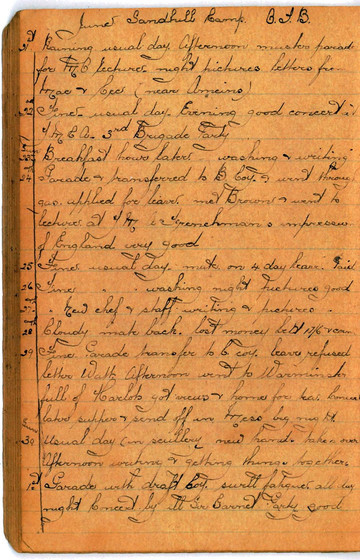 June Sandhill Camp. B.I.B.
21 Raining usual day Afternoon muster parade
for lecture night pictures letters from
Mac & Cec (near Amiens)
22 Fine usual day. Evening good concert at
Y M C A. 3rd Brigade Party
23 Breakfast hour later washing & writing
24 Parade & transferred to B Coy. & went through
gas applied for leave. met Brown & went to
lecture at Y M a Frenchman's impression
of England very good
25 Fine usual day. mate on 4 day leave.
26 Fine " washing night Pictures good
27 " New chef & staff writing & pictures
28 Cloudy mate back. lost money
29 Fine Parade transfer to C coy. leave refused
letter Afternoon went to Warminster
full of Harlots got views & home for tea.
later supper & send off in Mess big night.
30 Usual day (in scullery new hand. Taken over
Afternoon writing & getting things together.
1st Parade with draft Coy. swill fatigue all day
night Concert by Lt Sir Barnet Party good